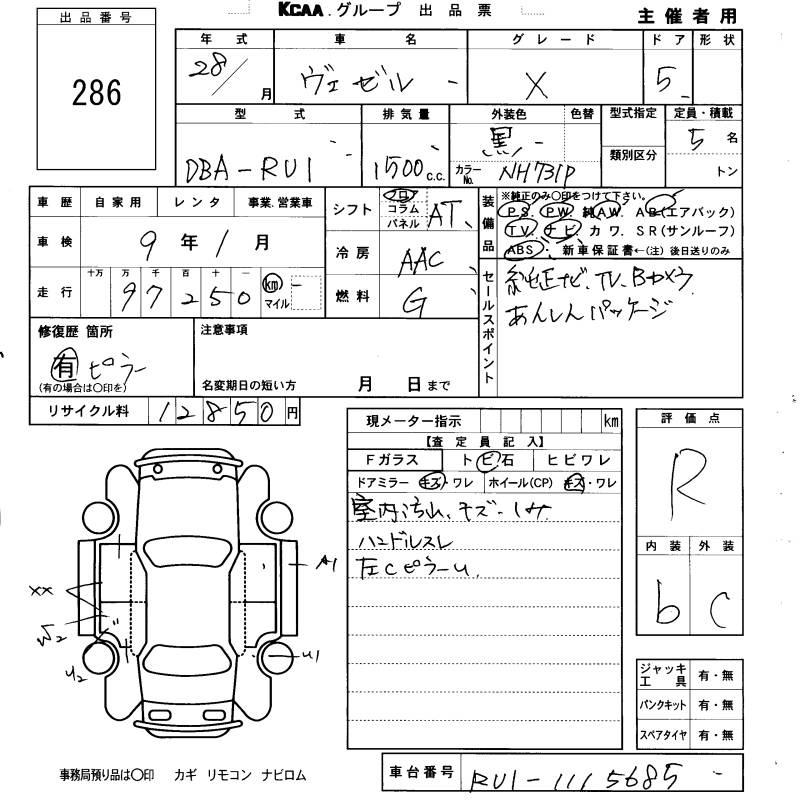 KCAA.グループ 出品票
主催者用
出品番号
286
年式 車名 グレード ドア 形状
28/ 月 ヴェゼル - X 5
型式 排気量 外装色 色替 型式指定 定員・積載
DBA-RU1 1500 c.c. 黒 カラーNo. NH731P 類別区分 5 名
トン
車歴 自家用 レンタ 事業.営業車
車検 9年1月
走行 十万 万 千 百 十 一
97250 km マイル
シフト フロア コラム パネル AT
冷房 AAC
燃料 G
装備品
※純正のみ〇印をつけて下さい。
PS. PW. 純AW. AB(エアバック)
TV. ナビ カワ. SR(サンルーフ)
ABS 新車保証書←(注) 後日送りのみ
セールスポイント
純正ナビ、TV、Bカメラ
あんしんパッケージ
修復歴 箇所
有 ピラー
(有の場合は〇印を)
注意事項
名変期日の短い方 月 日まで
リサイクル料 12850円
現メーター指示 km
【査定員記入】
Fガラス トビ石 ヒビワレ
ドアミラー キズ・ワレ ホイール(CP) キズ・ワレ
室内汚れ、キズ・シミ
ハンドルスレ
左CピラーU.
評価点
R
内装 外装
b c
XX
W2
U2
A1
U1
ジャッキ工具 有・無
パンクキット 有・無
スペアタイヤ 有・無
事務局預り品は〇印 カギ リモコン ナビロム
車台番号 RU1-1115685